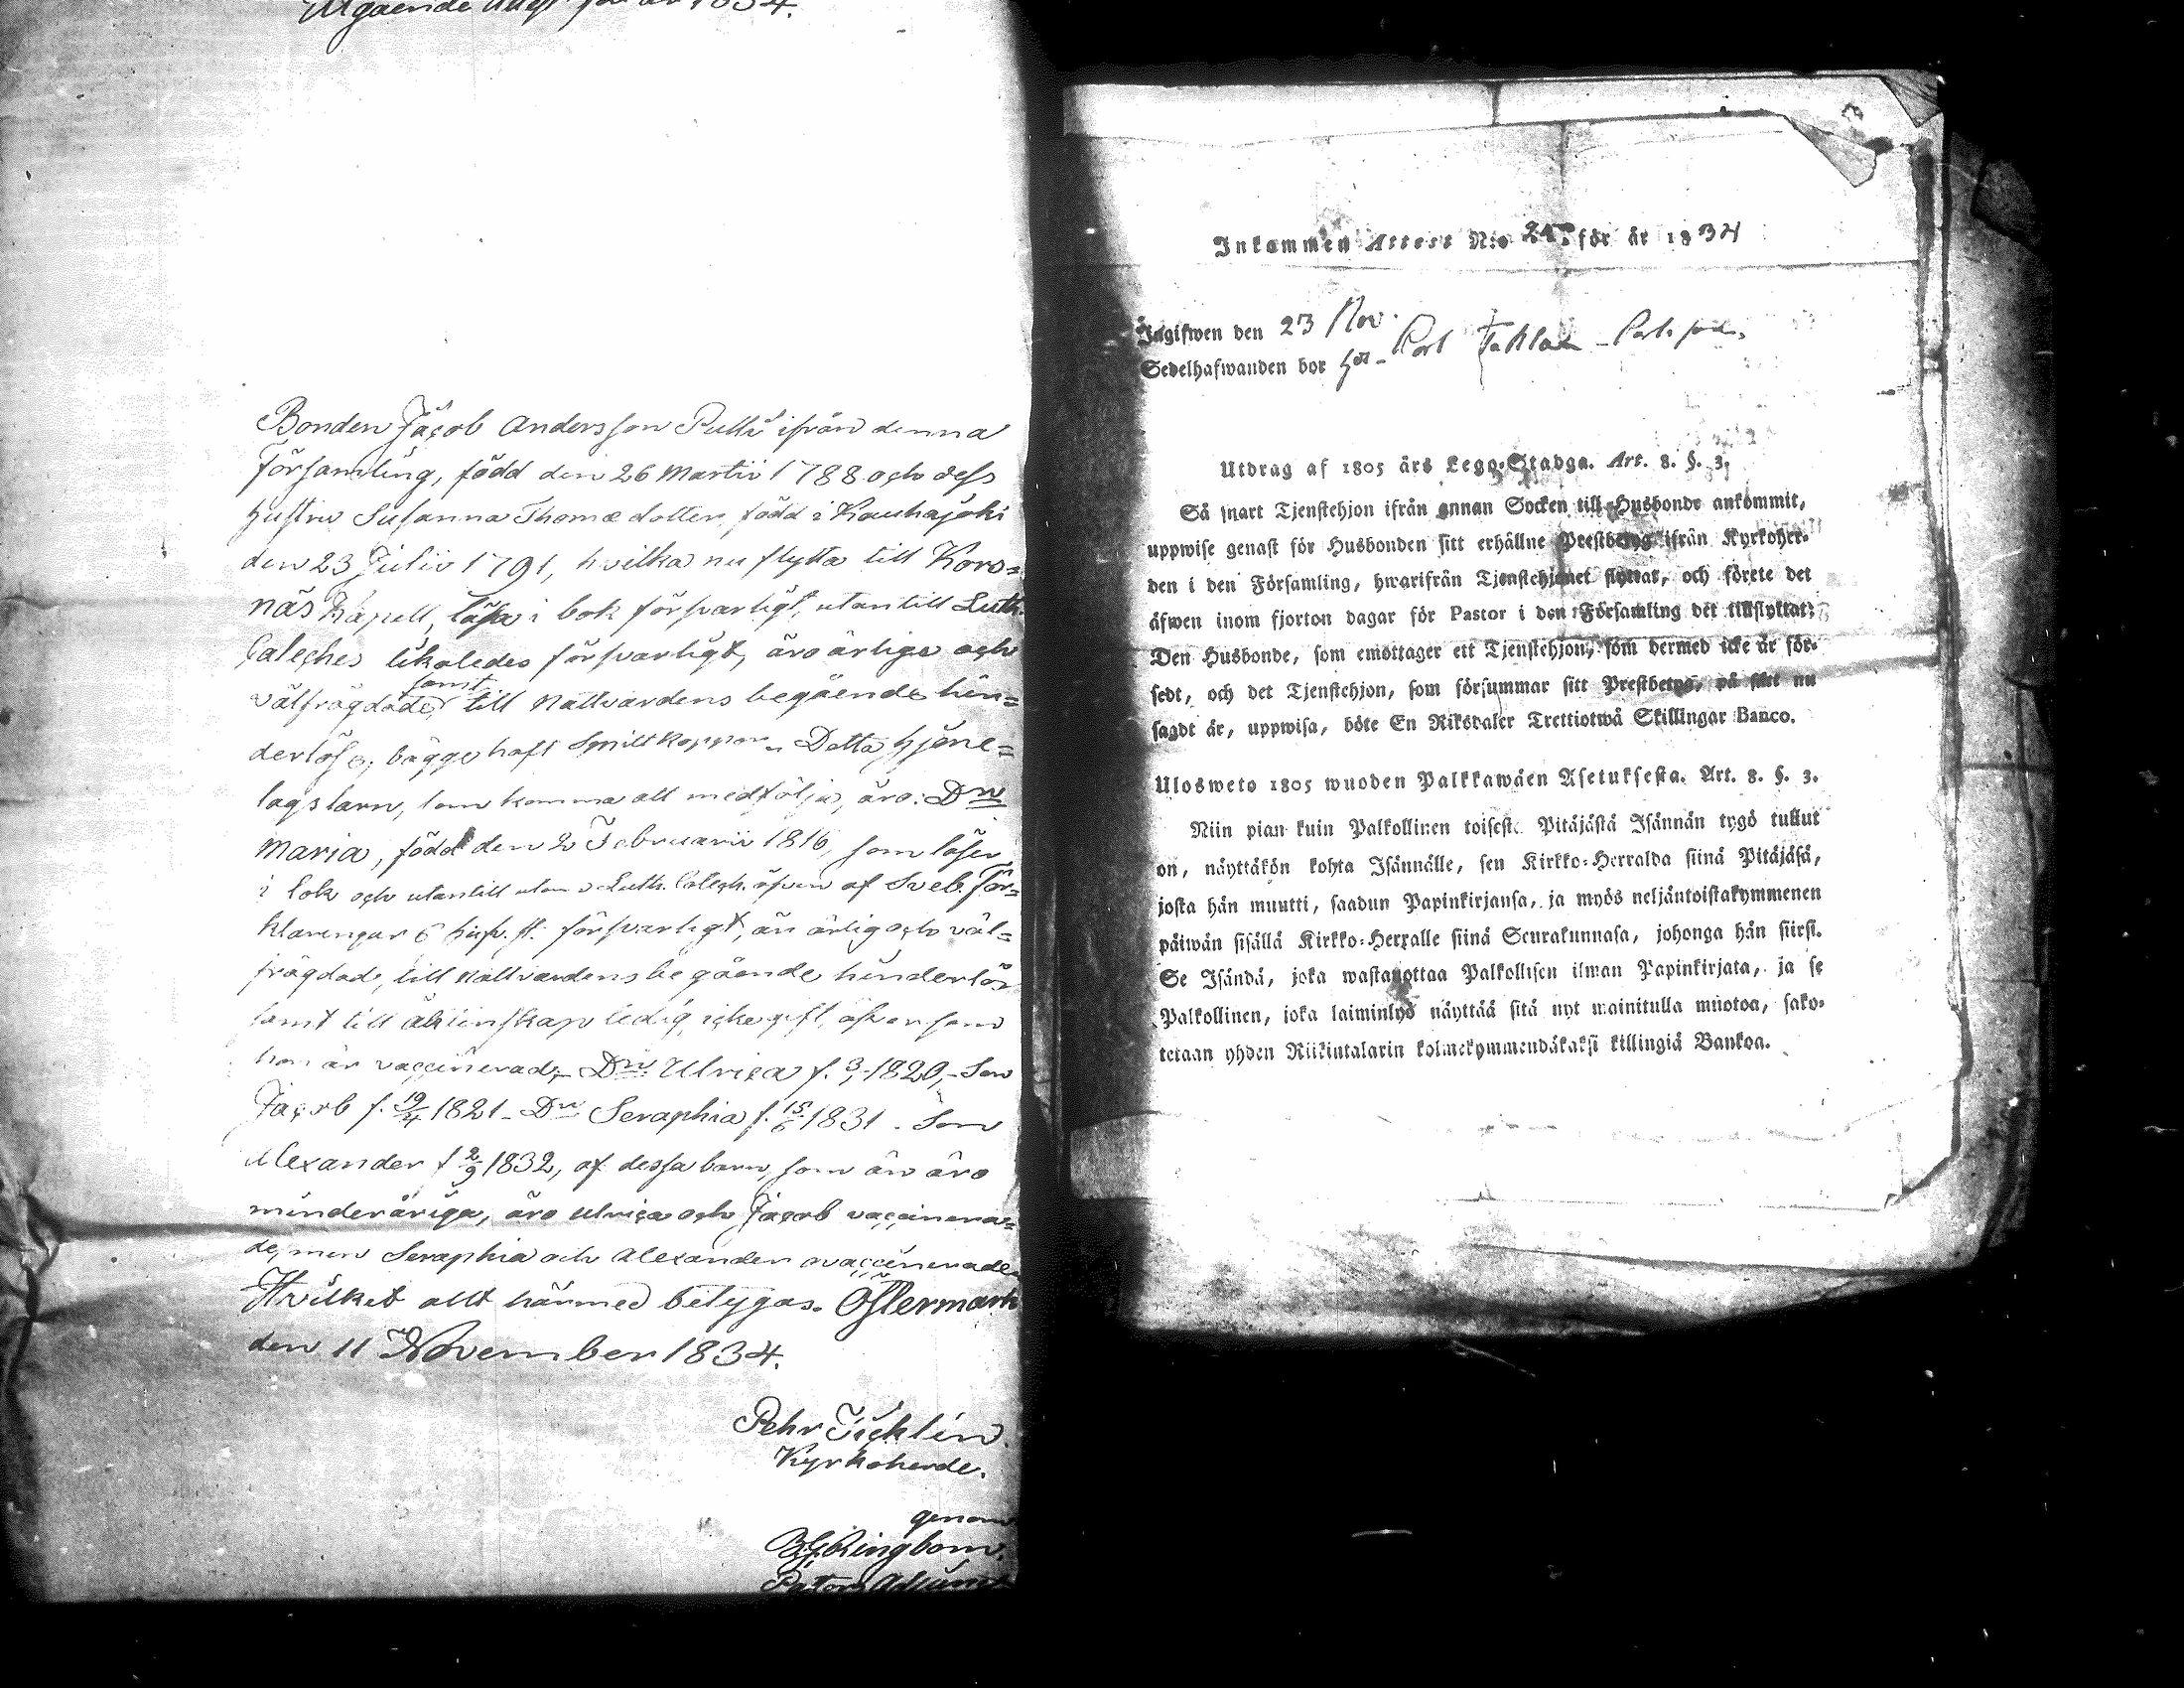 Utgående Attest för år 1834.
Bonden Jacob Andersson Putti ifrån denna
Församling, född den 26 Martii 1788 och dess
hustru Susanna Thomædotter, född i Kauhajoki
den 23 Julii 1791, hvilka nu flytta till Kors=
näs Kapell, läsa i bok försvarligt, utantill Luth.
Cateches likaledes försvarligt, äro ärliga och
välfrägdade, samt till Nattvardens begående hin=
derlösa, bägge haft Smittkoppor. Detta Hjone=
lags barn, som komma att medfölja, äro: Dn
Maria, född den 2 Februarii 1816, som läser
i bok och utantill utom Luth. Catech. äfven af Sveb. För=
klaringar 6 huf. st. försvarligt, är ärlig och väl=
frägdad, till Nattvardens begående hinderlös
samt till äktenskap ledig, icke gift, äfvensom
hon är vaccinerad, Dn Ulrica f. 1820, Son
Jacob f. 19/4 1821 - Dn Seraphia f. 15/6 1831 - Son
Alexander f 2/9 1832, af dessa barn, som än äro
minderåriga, äro Ulrica och Jacob vaccinera=
de, men Seraphia och Alexander ovaccinerade
Hvilket allt härmed betygas. Östermark
den 11 November 1834.
Pehr Ticklén.
Kyrkoherde.
genom
Ringbom.
Pastors Adjunct
Inkommen Attest N:o för år 1834
Ingifwen den 23 Nov.
Sedelhafwanden bor
Utdrag af 1805 års Lego-Stadga. Art. 8. §. 3.
Så snart Tjenstehjon ifrån annan Socken till Husbonde ankommit,
uppwise genast för Husbonden sitt erhållne Prestbetyg ifrån Kyrkoher-
den i den Församling, hwarifrån Tjenstehjonet flyttat, och förete det
äfwen inom fjorton dagar för Pastor i den Församling det tillflyttat;
Den Husbonde, som emottager ett Tjenstehjon, som dermed icke är för-
sedt, och det Tjenstehjon, som försummar sitt Prestbetyg, på sätt nu
sagdt är, uppwisa, böte En Riksdaler Trettiotwå Skillingar Banco.
Ulosweto 1805 wuoden Palkkawäen Asetuksesta. Art. 8. §. 3.
Niin pian kuin Palkollinen toisesta Pitäjästä Isännän tygö tullut
on, näyttäkön kohta Isännälle, sen Kirkko-Herralda siinä Pitäjäsä,
josta hän muutti, saadun Papinkirjansa, ja myös neljäntoistakymmenen
päiwän sisällä Kirkko-Herralle siinä Seurakunnasa, johonga hän siirsi.
Se Isändä, joka wastanottaa Palkollisen ilman Papinkirjata, ja se
Palkollinen, joka laiminlyö näyttää sitä nyt mainitulla muotoa, sako-
tetaan yhden Riikintalarin kolmekymmendäkaksi killingiä Bankoa.